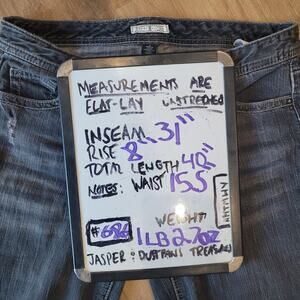 MEASUREMENTS ARE
FLAT-LAY UNSTRECHED
INSEAM 31"
RISE 8"
TOTAL LENGTH 40"
NOTES: WAIST 15.5
WEIGHT
#686 1LB 2.7oz
JASPER & DUSTPANS TREASURES